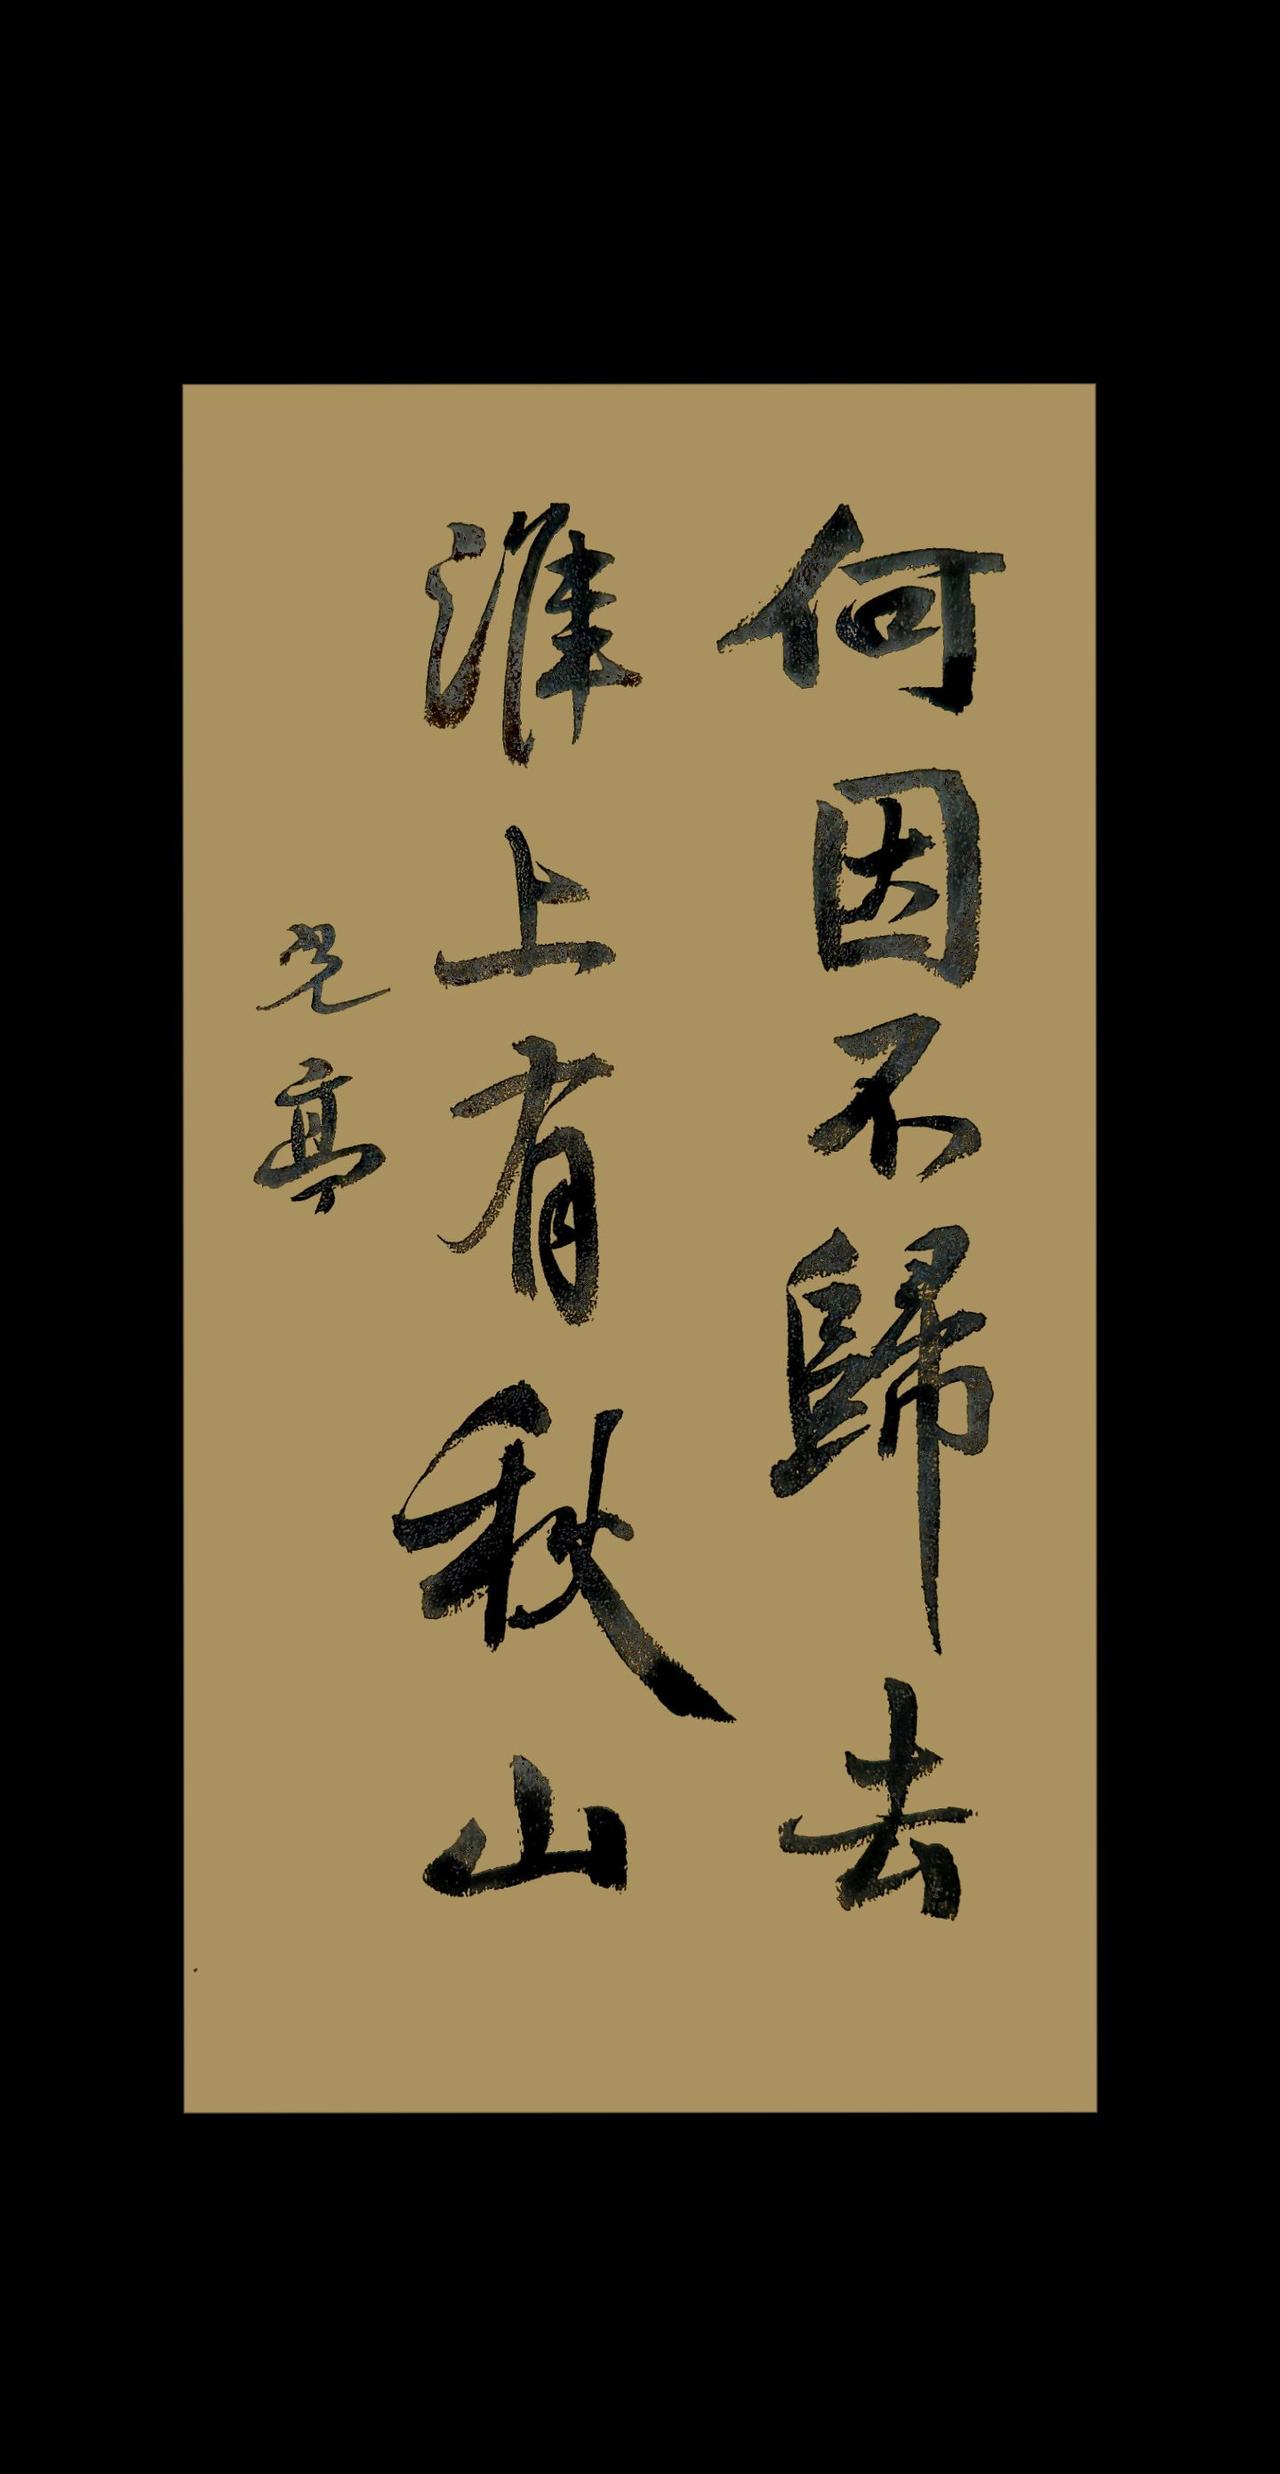 何因不歸去
淮上有秋山
亭